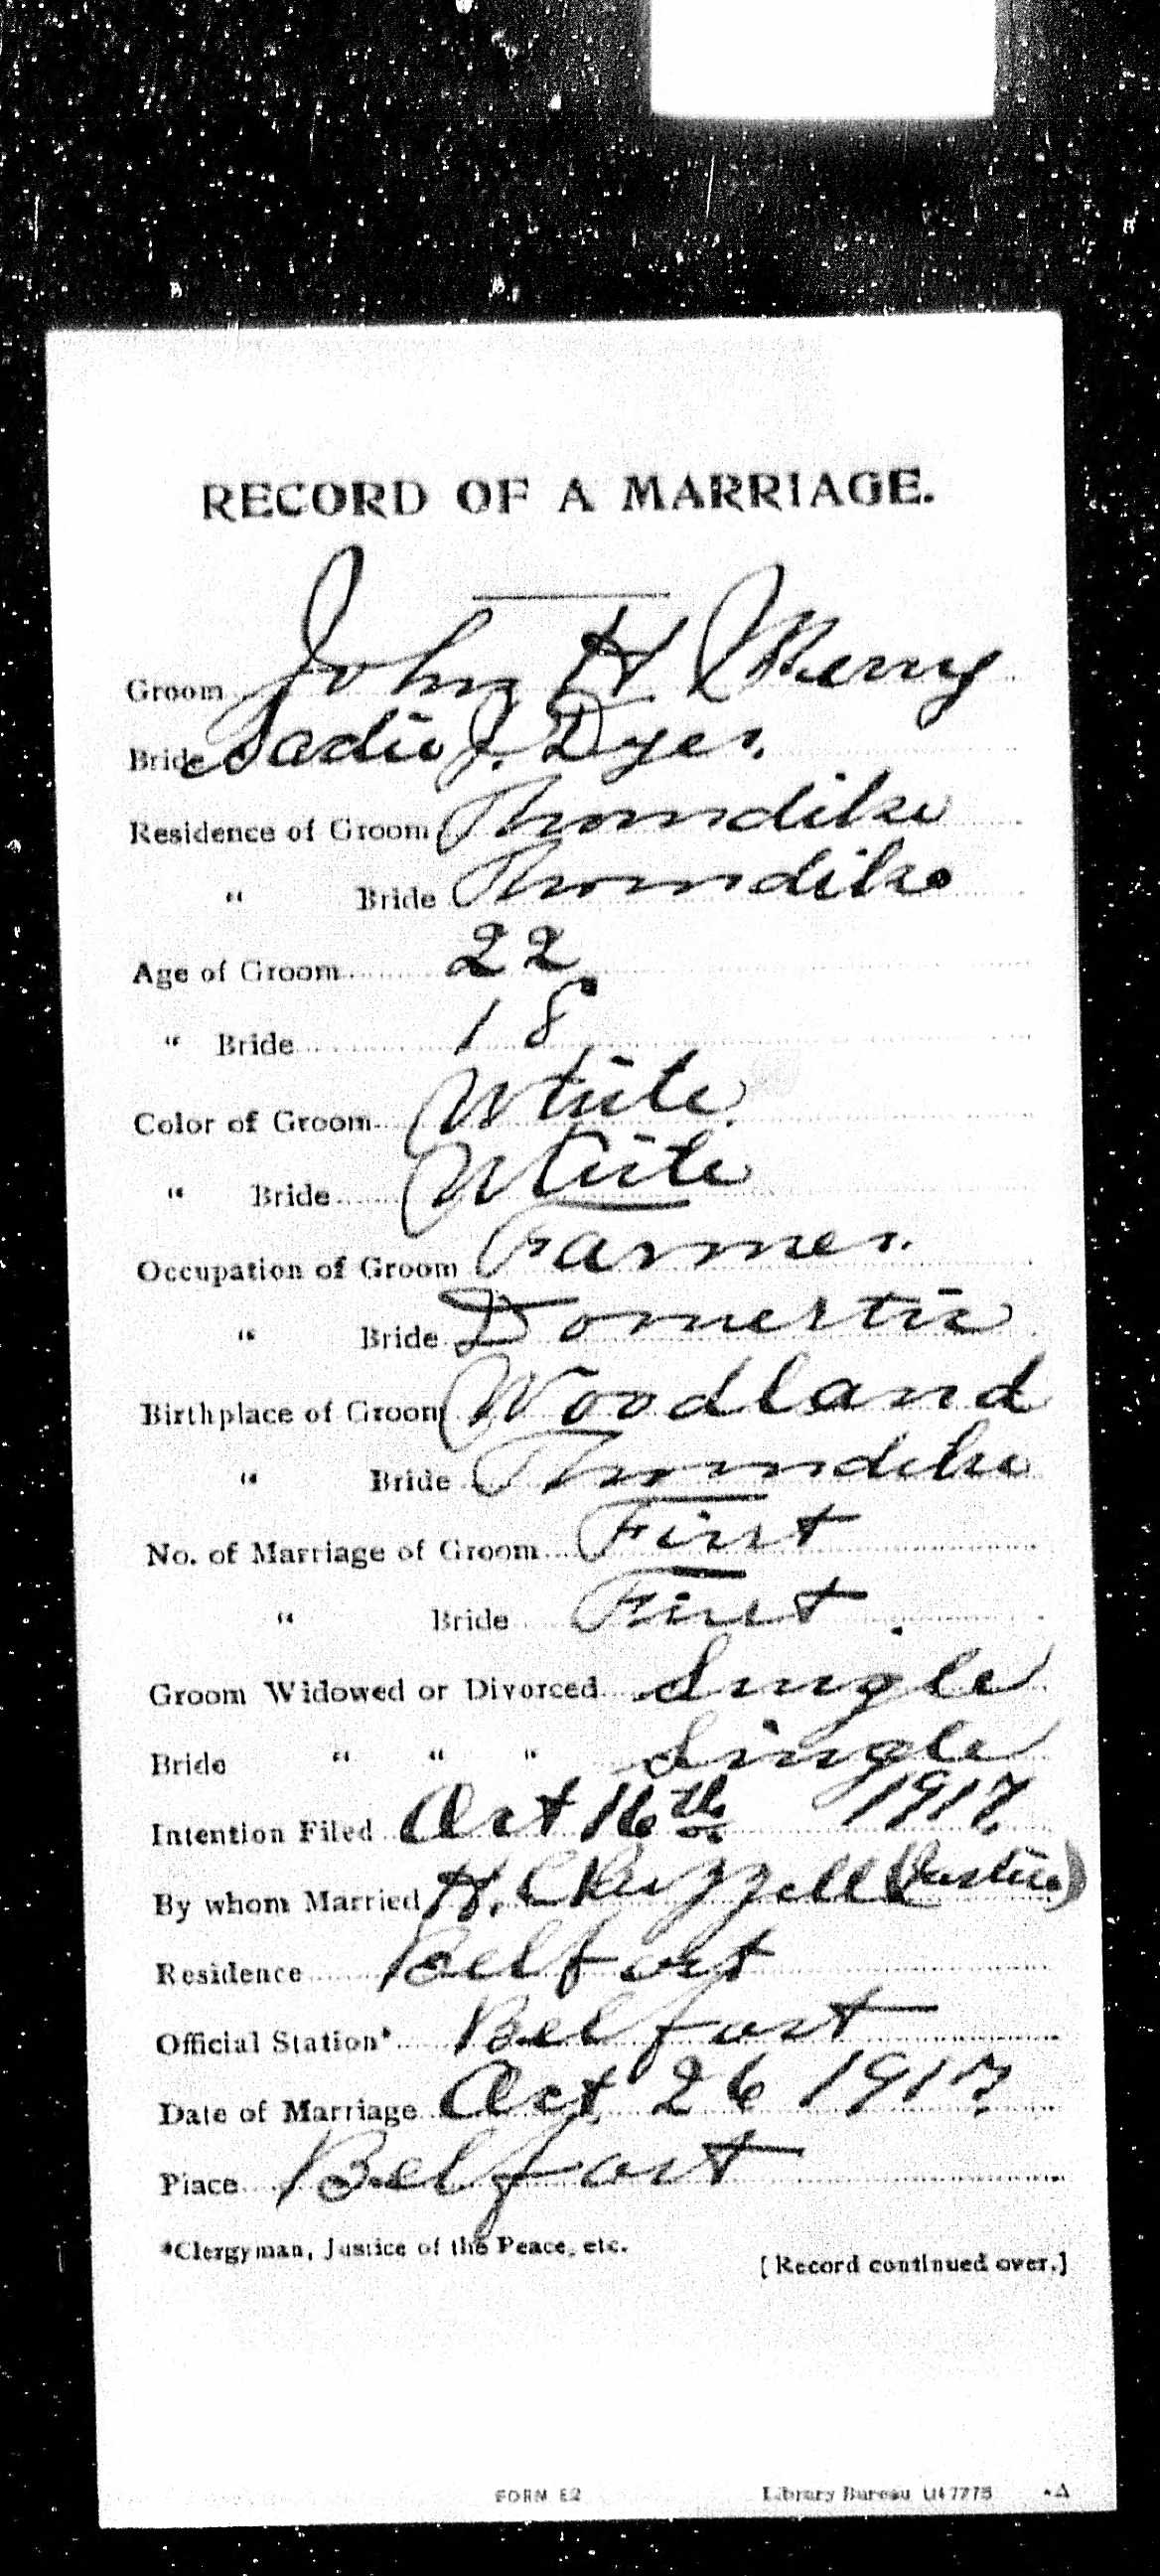 RECORD OF A MARRIAGE.
Groom John H Merry
Bride Sadie J. Dyer.
Residence of Groom Thorndike
" Bride Thorndike
Age of Groom 22
" Bride 18
Color of Groom White
" Bride White
Occupation of Groom Farmer.
" Bride Domestic
Birthplace of Groom Woodland
" Bride Thorndike
No. of Marriage of Groom First
" Bride First
Groom Widowed or Divorced Single
Bride " " " Single
Intention Filed Oct 16th 1917
By whom Married H. C Buzzell (Justice)
Residence Belfast
Official Station* Belfast
Date of Marriage Oct 26 1917
Place Belfast
*Clergyman, Justice of the Peace, etc.
[Record continued over.]
FORM E2 Library Bureau